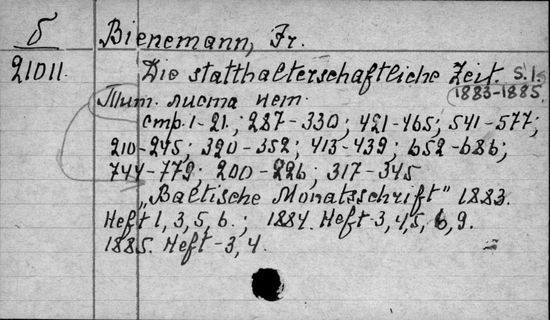 б Bienemann, Fr.
21011. Die statthalterschaftliche Zeit. S.l.
1883-1885.
Тит. листа нет.
стр. 1-21.; 287-330; 421-465; 541-577;
210-245; 320-352; 413-439; 652-686;
744-779; 200-226; 317-345
„Baltische Monatsschrift" 1883.
Heft 1, 3, 5, 6.; 1884. Heft-3, 4, 5, 6, 9.
1885. Heft-3, 4.